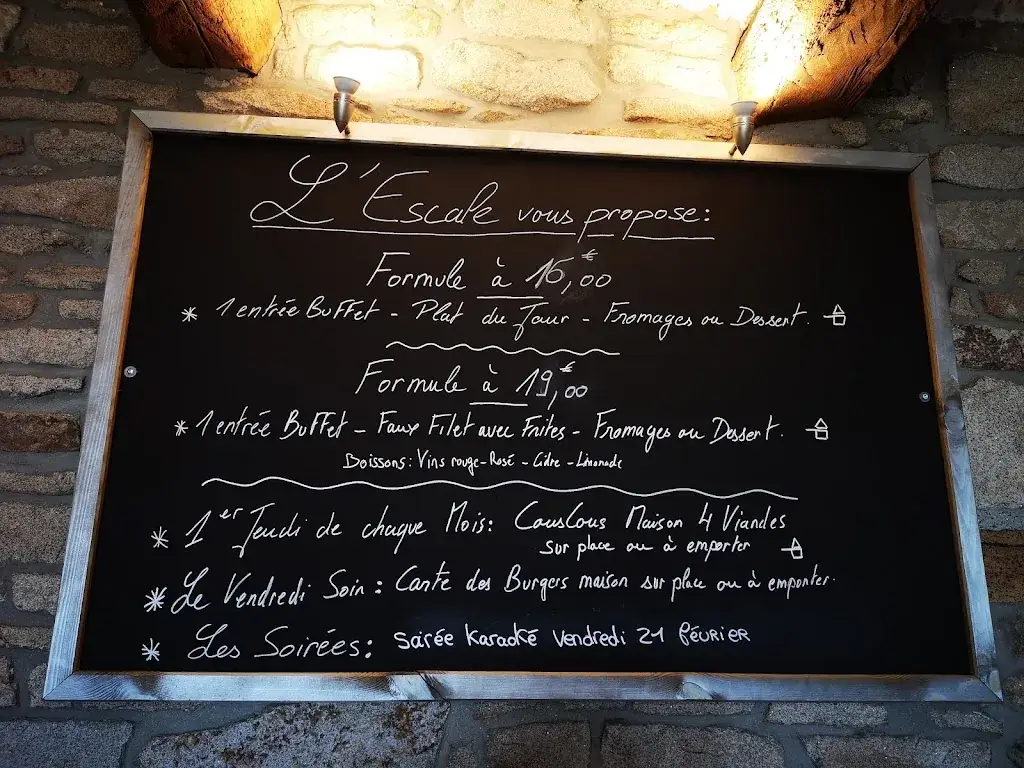 L'Escale vous propose:
Formule à 16,00€
* 1 entrée Buffet - Plat du Jour - Fromages ou Dessert.
Formule à 19,00€
* 1 entrée Buffet - Faux Filet avec Frites - Fromages ou Dessert.
Boissons: Vins rouge - Rosé - Cidre - Limonade
* 1er Jeudi de chaque Mois: CousCous Maison 4 Viandes
sur place ou à emporter
* Le Vendredi Soir: Carte des Burgers maison sur place ou à emporter.
* Les Soirées: Soirée Karaoké Vendredi 21 février